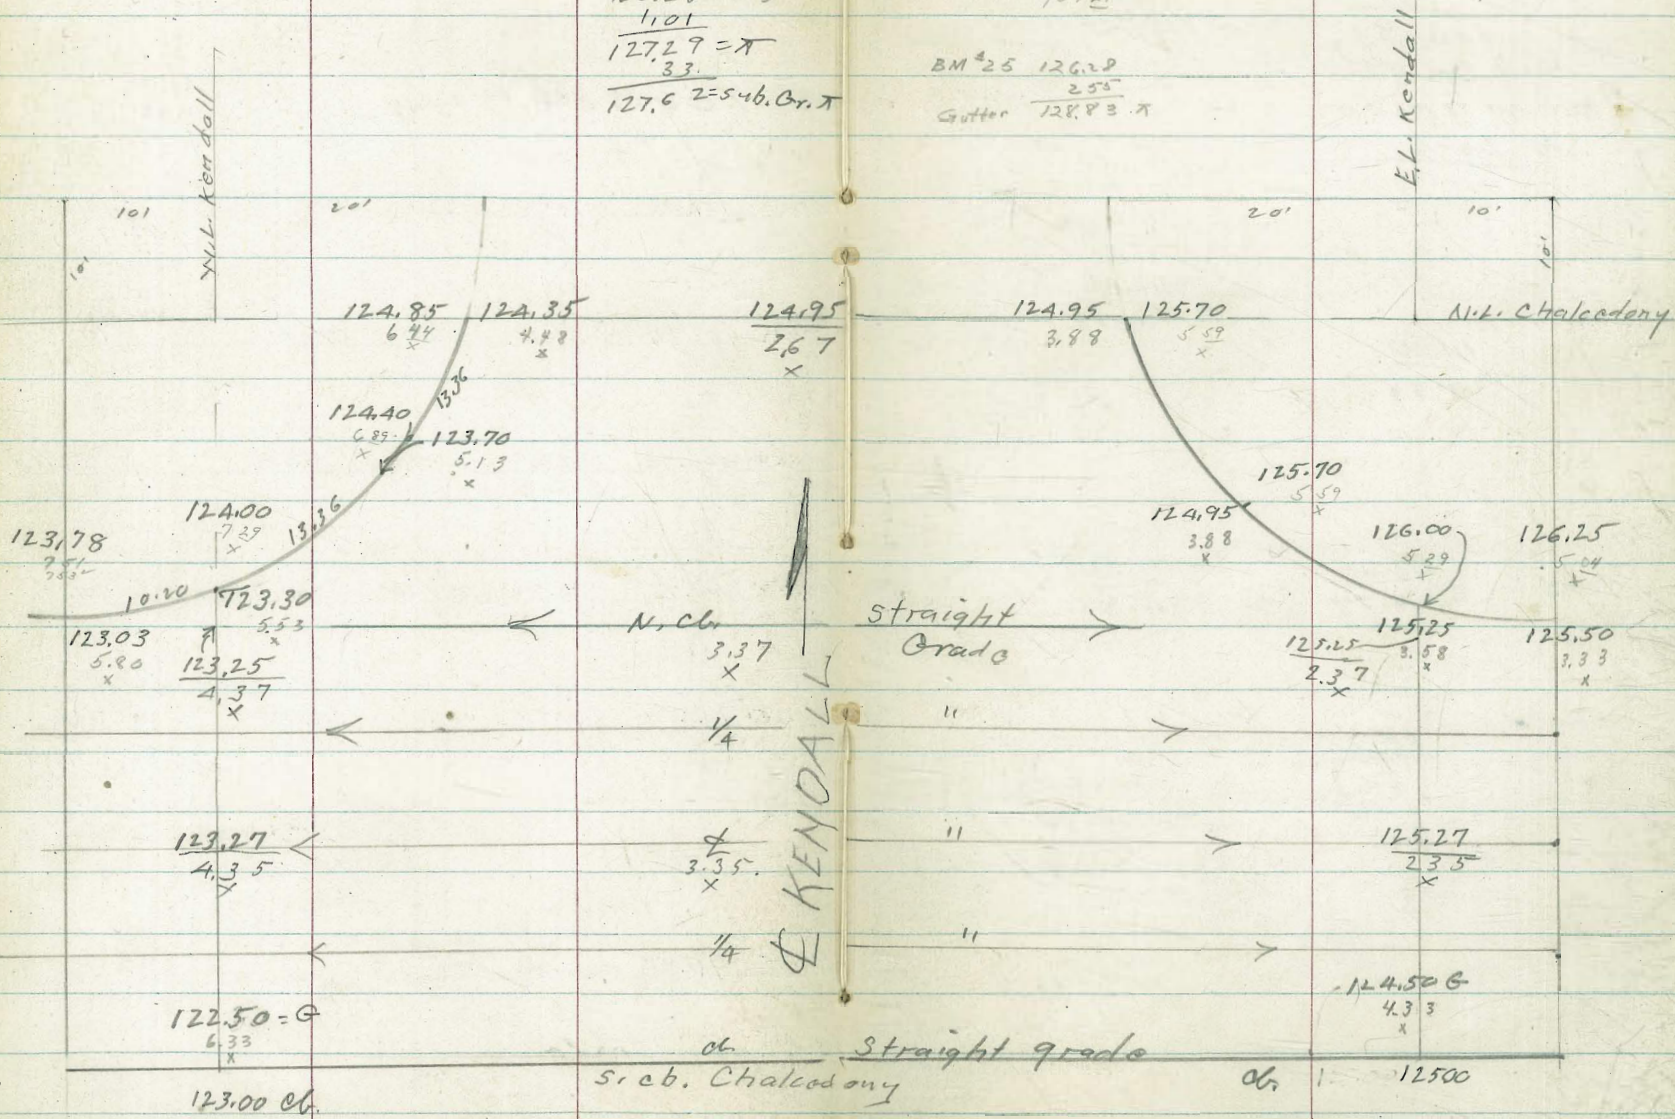 1.01
127.29 = π
33
127.62 = sub. Gr. π
BM #25 126.28
255
Gutter 128.83 π
W.L. Kendall
E.L. Kendall
101
20'
10'
20'
10'
10'
N.L. Chalcedony
124.85
6 44
x
124.35
4.48
x
124.95
2.67
x
124.95
3.88
125.70
5 59
x
13.36
124.40
6 89
x
123.70
5.13
x
125.70
5 59
x
124.95
3.88
x
124.00
7 29
x
13.36
126.00
5 29
x
126.25
5 04
x
123.78
10.20
123.30
5.53
x
123.03
5.80
x
123.25
4.37
x
N. cb.
3.37
x
Straight
Grade
125.25
2.37
x
125.25
3.58
x
125.50
3.33
x
1/4
"
KENDALL
123.27
4.35
x
℄
3.35.
x
"
125.27
2 35
x
1/4
"
℄
124.50 G
4.33
x
122.50 = G
6.33
x
cb. Straight grade
S. cb. Chalcedony
cb. 12500
123.00 cb.